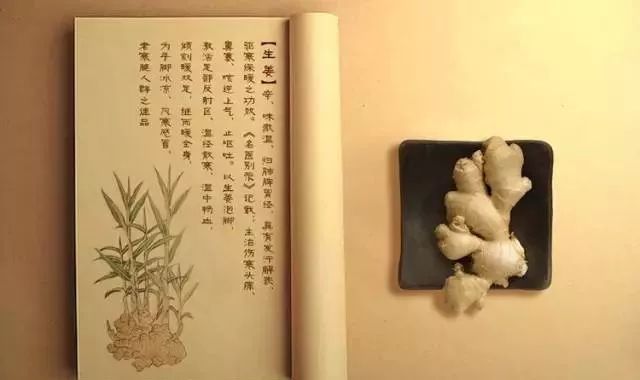 【生姜】辛、味微温，归肺脾胃经，具有发汗解表、
驱寒保暖之功效。《名医别录》记载：主治伤寒头疼、
鼻塞、咳逆上气，止呕吐。以生姜泡脚，
激活足部反射区，温经散寒，温中畅血，
顷刻暖双足，继而暖全身，
为手脚冰凉、风寒感冒、
老寒腿人群之佳品